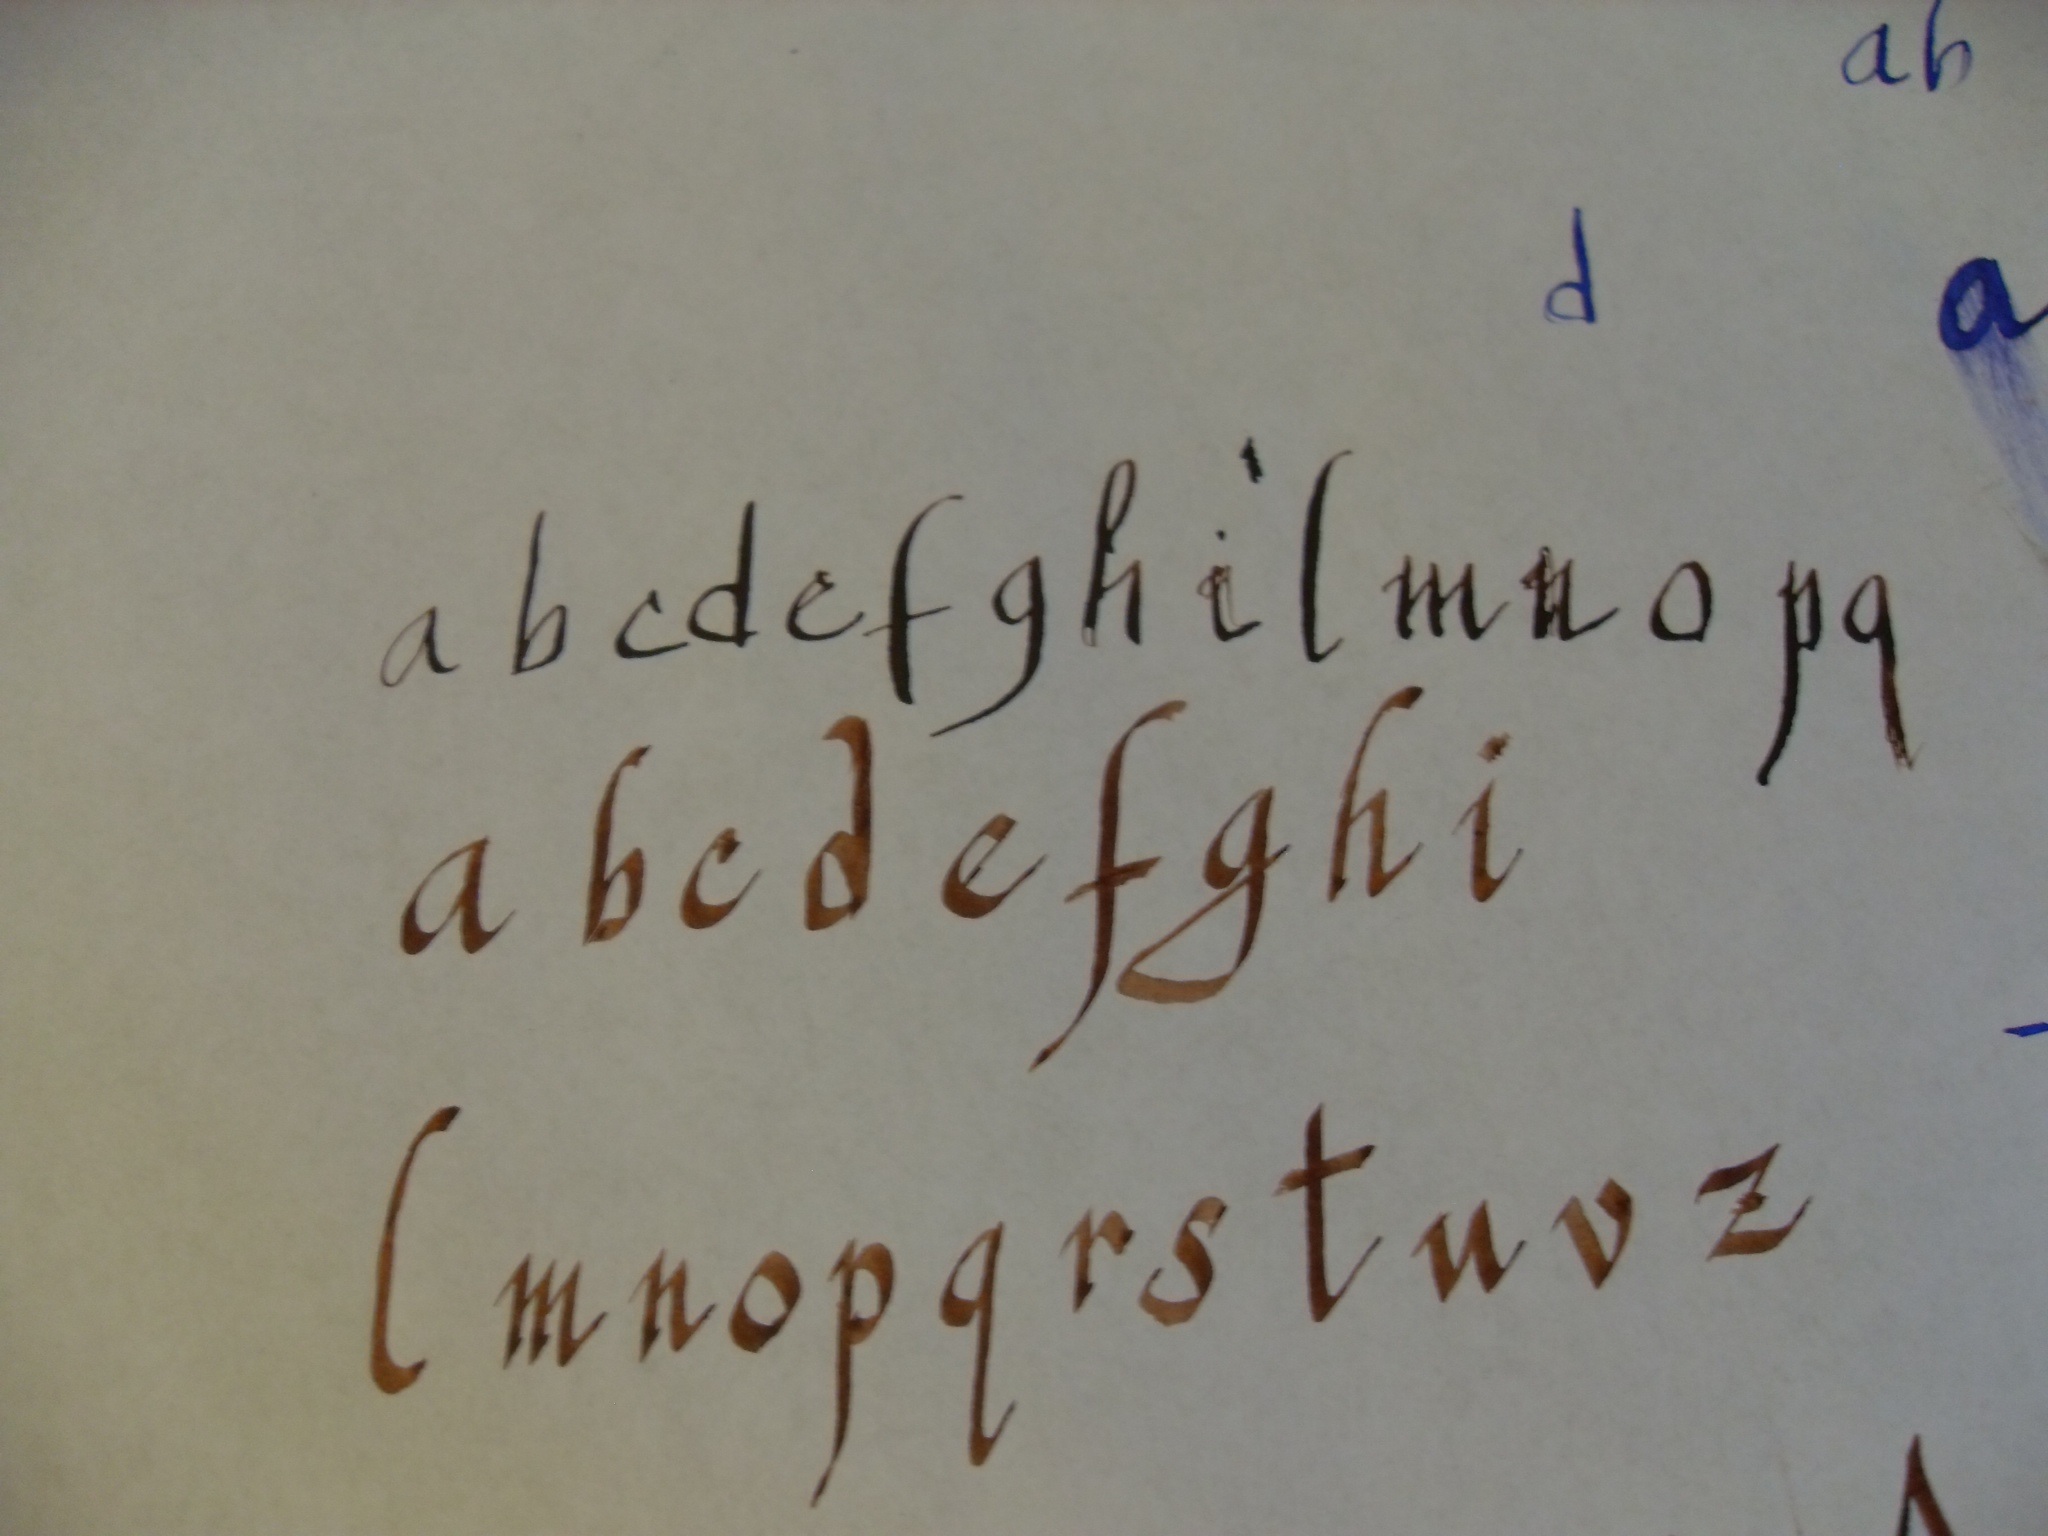 ab
d a
a b c d e f g h i l m n o p q
a b c d e f g h i
l m n o p q r s t u v z